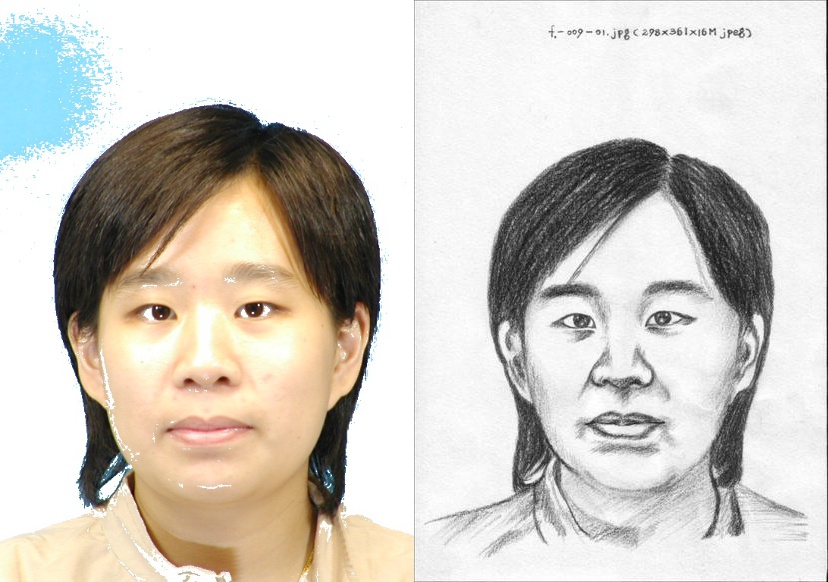 f-009-01.jpg (298×361×16M jpeg)